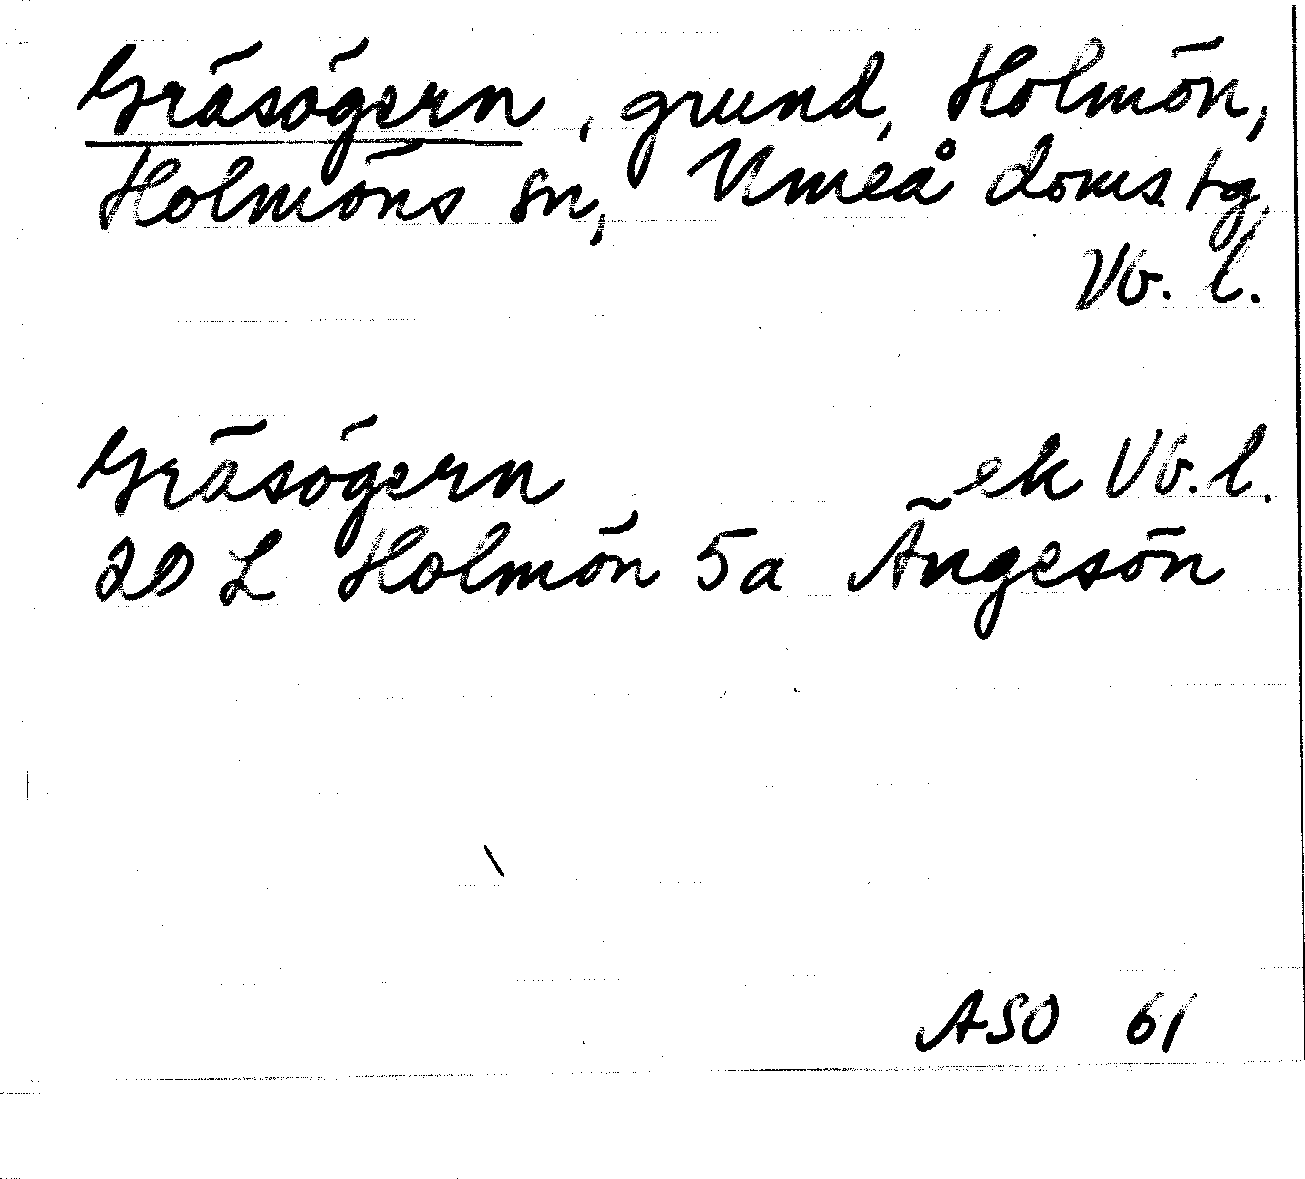 Gräsögern, grund, Holmön,
Holmöns sn, Umeå doms.tg,
Vb. l.
Gräsögern ek Vb. l.
20 L Holmön 5a Ängesön
ASO 61